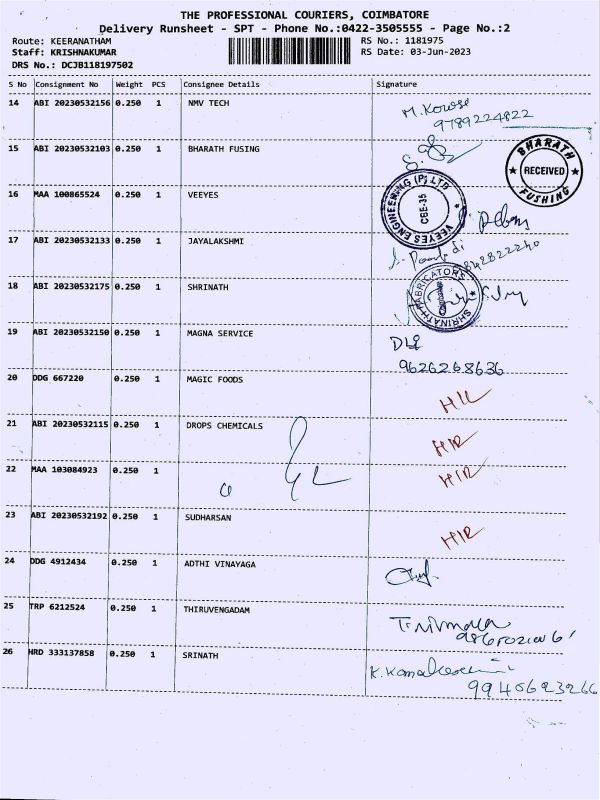 THE PROFESSIONAL COURIERS, COIMBATORE
Delivery Runsheet - SPT - Phone No.:0422-3505555 - Page No.:2
Route: KEERANATHAM RS No.: 1181975
Staff: KRISHNAKUMAR RS Date: 03-Jun-2023
DRS No.: DCJB118197502
S No Consignment No Weight PCS Consignee Details Signature
14 ABI 20230532156 0.250 1 NMV TECH
9789224822
15 ABI 20230532103 0.250 1 BHARATH FUSING
BHARATH RECEIVED FUSHING
16 MAA 100865524 0.250 1 VEEYES
VEEYES ENGINEERING (P) LTD CBE-35
17 ABI 20230532133 0.250 1 JAYALAKSHMI
18 ABI 20230532175 0.250 1 SHRINATH
SHRINATH FABRICATORS
19 ABI 20230532150 0.250 1 MAGNA SERVICE
9626268636
20 DDG 667220 0.250 1 MAGIC FOODS
21 ABI 20230532115 0.250 1 DROPS CHEMICALS HIR
22 MAA 103084923 0.250 1 HIR
23 ABI 20230532192 0.250 1 SUDHARSAN HIR
24 DDG 4912434 0.250 1 ADTHI VINAYAGA
25 TRP 6212524 0.250 1 THIRUVENGADAM
26 HRD 333137858 0.250 1 SRINATH